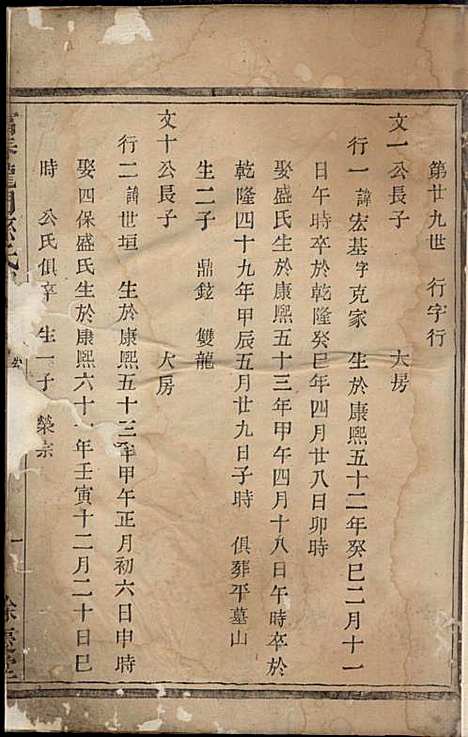 第廿九世 行字行
文一公長子 大房
行一諱宏基字克家 生於康熙五十二年癸巳二月十一
日午時卒於乾隆癸巳年四月廿八日卯時
娶盛氏生於康熙五十三年甲午四月十八日午時卒於
乾隆四十九年甲辰五月廿九日子時 俱葬平墓山
生二子 鼎鉉 雙龍
文十公長子 大房
行二諱世垣 生於康熙五十三年甲午正月初六日申時
娶四保盛氏生於康熙六十一年壬寅十二月二十日巳
時 公氏俱卒 生一子 榮宗
龍 一